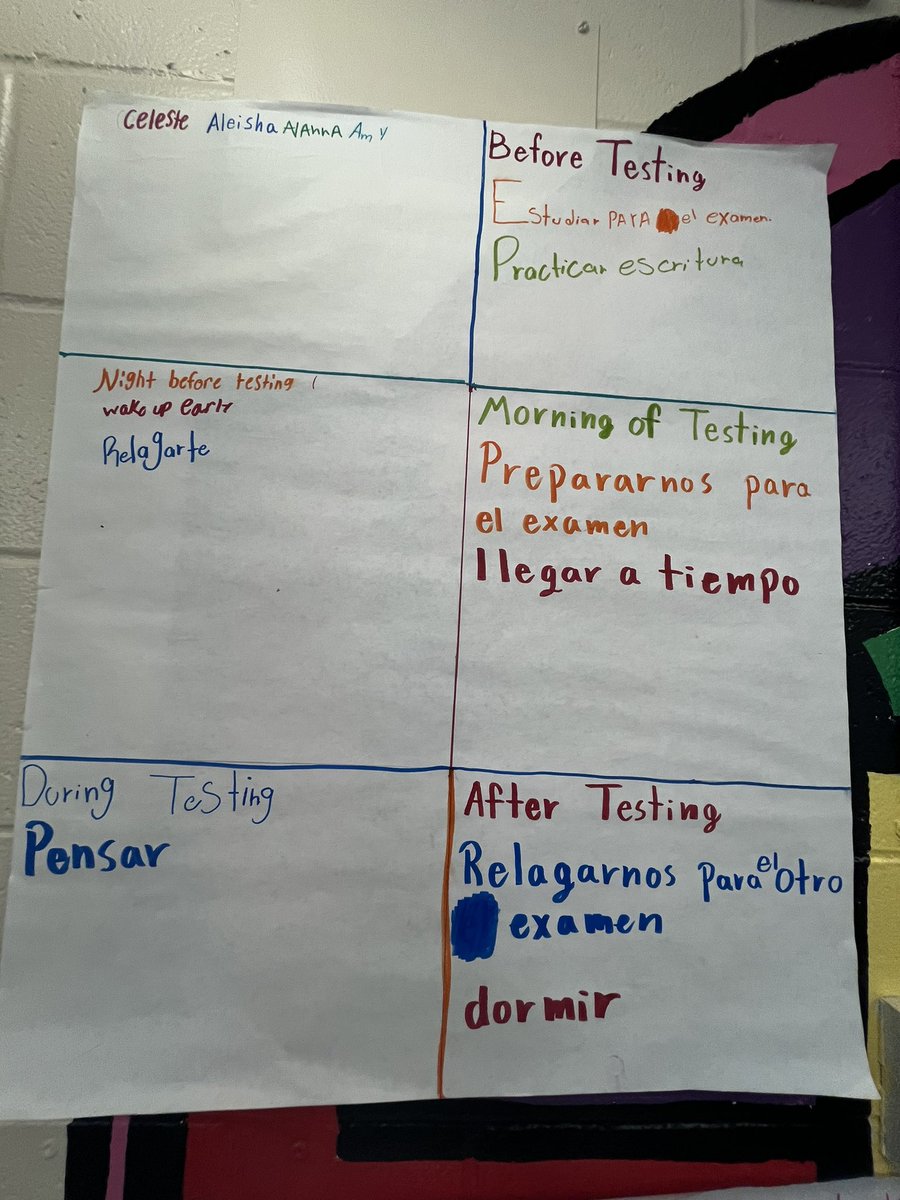 Celeste Aleisha AlAnnA Amy
Before Testing
Estudiar PARA el examen.
Practicar escritura
Night before testing
wake up early
Relagarte
Morning of Testing
Prepararnos para
el examen
llegar a tiempo
During Testing
Pensar
After Testing
Relagarnos para el otro
examen
dormir